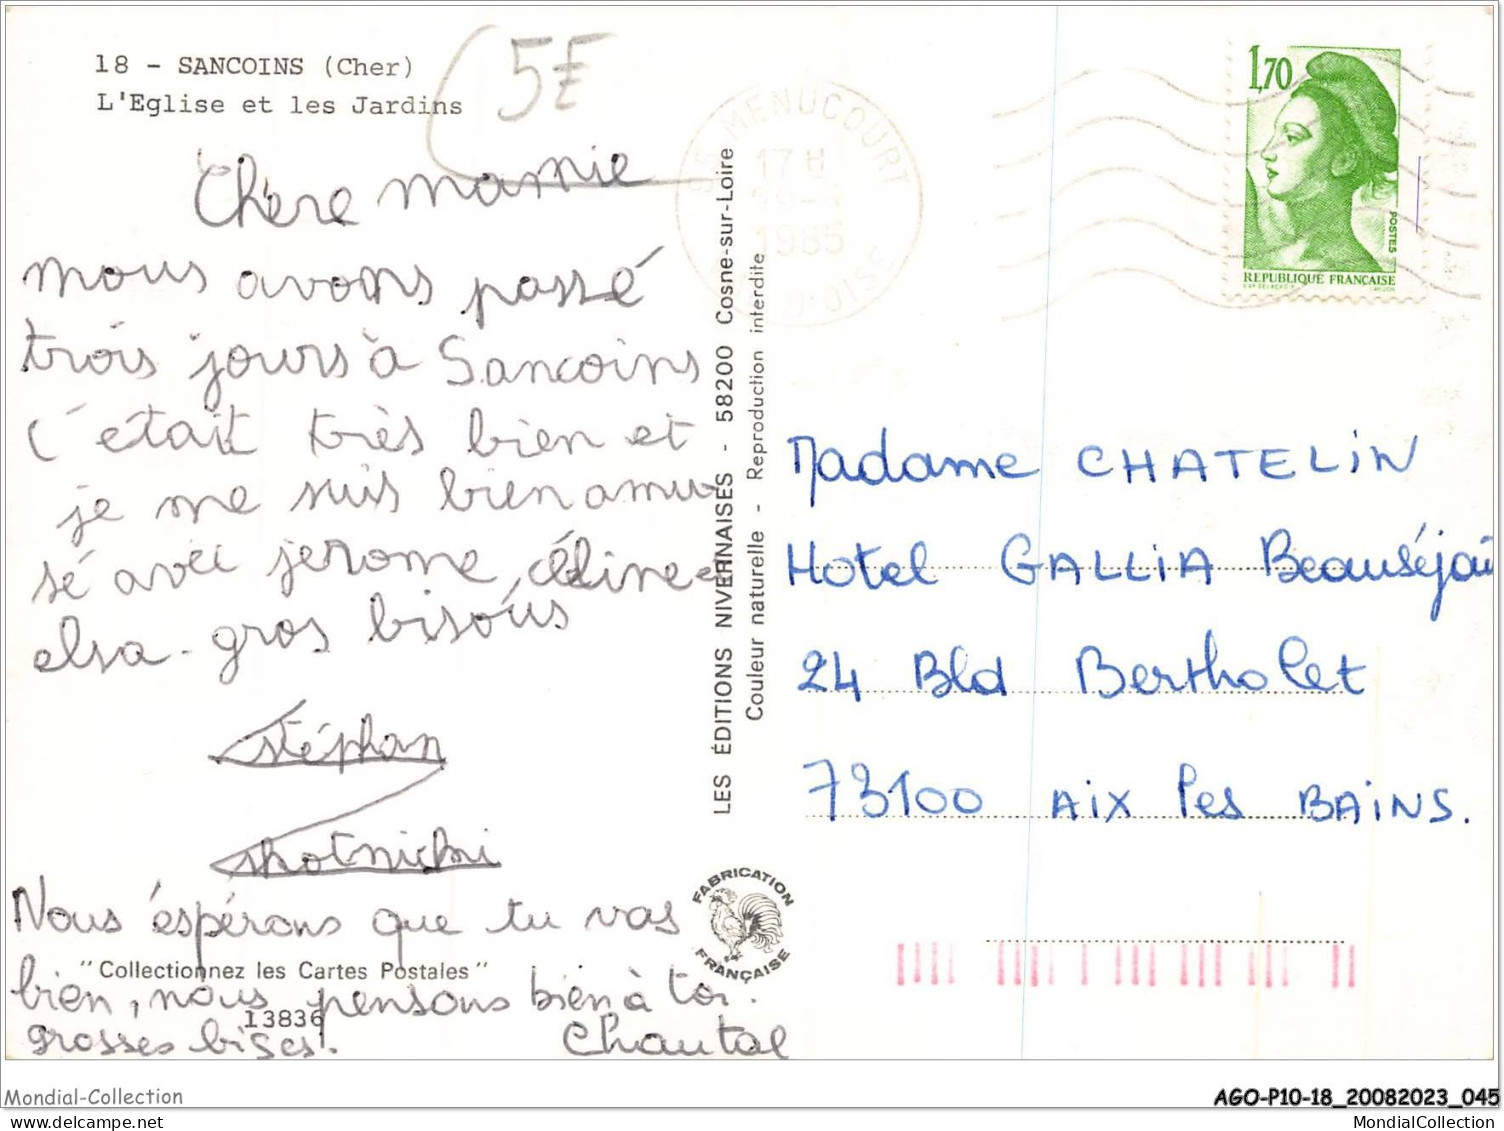 18 - SANCOINS (Cher)
L'Eglise et les Jardins
5E
Chère mamie
nous avons passé
trois jours à Sancoins
c'était très bien et
je me suis bien amu-
sé avec jerome, céline et
elsa - gros bisous
stéphan
skotnicki
Nous éspérons que tu vas
bien, nous pensons bien à toi.
grosses bises.
Chantal
"Collectionnez les Cartes Postales"
13836
LES ÉDITIONS NIVERNAISES - 58200 Cosne-sur-Loire
Couleur naturelle - Reproduction interdite
FABRICATION
FRANÇAISE
MENUCOURT
17 H
1985
D'OISE
1,70
POSTES
REPUBLIQUE FRANÇAISE
Madame CHATELIN
Hotel GALLIA Beauséjour
24 Bld Bertholet
73100 AIX les BAINS.
Mondial-Collection
AGO-P10-18_20082023_045
MondialCollection